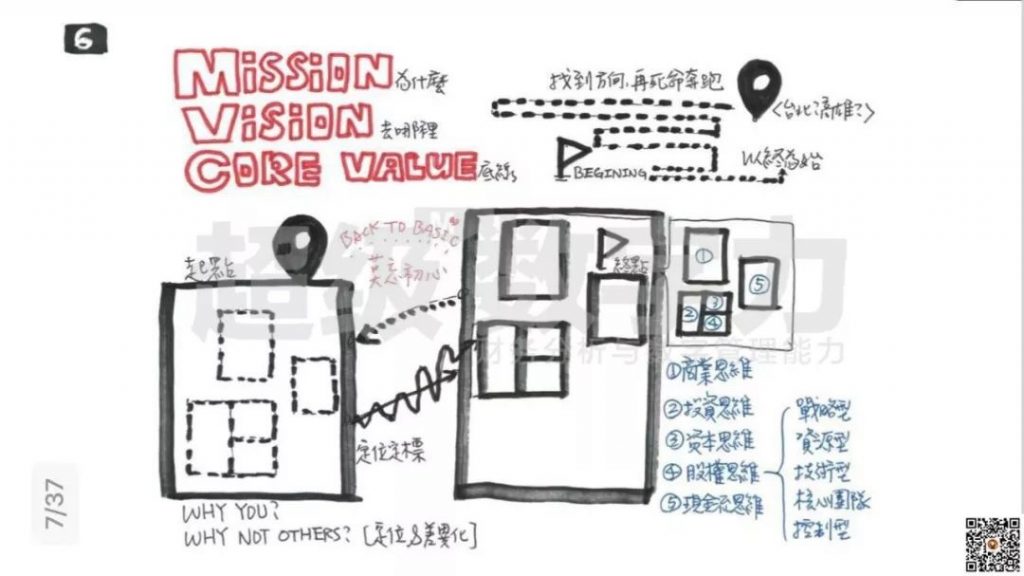 6
MISSION 為什麼
VISION 去哪裡
CORE VALUE 底線
找到方向,再死命奔跑
<台北?高雄?>
BEGINING
以終為始
BACK TO BASIC
莫忘初心
起點
終點
定位定標
WHY YOU?
WHY NOT OTHERS? [定位&差異化]
①
②
③
④
⑤
①商業思維
②投資思維
③資本思維
④股權思維
⑤現金流思維
戰略型
資源型
技術型
核心團隊
控制型
超级数字力
财务分析与数字管理能力
7/37